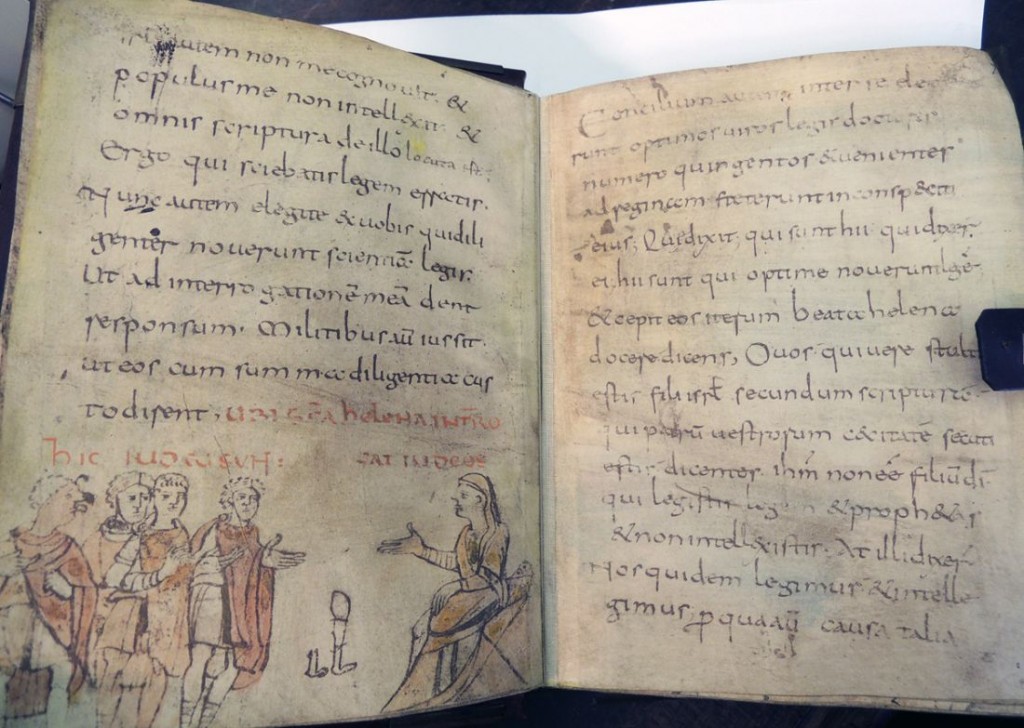 autem non me cognovit. &
populus me non intellexit. &
omnis scriptura de illo locuta est.
Ergo qui sciebatis legem effecti s.
Nunc autem elegite & vobis qui dili
genter noverunt scientiā legis.
Ut ad interrogationē meā dent
responsum. Militibus aū iussit.
ut eos cum summa diligentia cus
todirent, UBI SCA helENA INTRO
hIC IUDAEI SUNT: GAT IUDEOS
Concilium autem inter se de
runt optimos viros legis doctores
numero quingentos & venientes
ad reginam steterunt in conspecti
eius; Qui dixit, qui sunt hii qui dixer̄
ei, hii sunt qui optime noverunt legē
& cepit eos iterum beata helena
docere dicens, O vos qui vere stulti
estis filii isrl secundum scriptura
qui patrū vestrorum cecitatē secuti
estis dicentes ihm non eē filiū di
qui legistis & proph&as
& non intellexistis. At illi dixer̄
Nos quidem legimus & intelle
gimus p qua aū causa talia